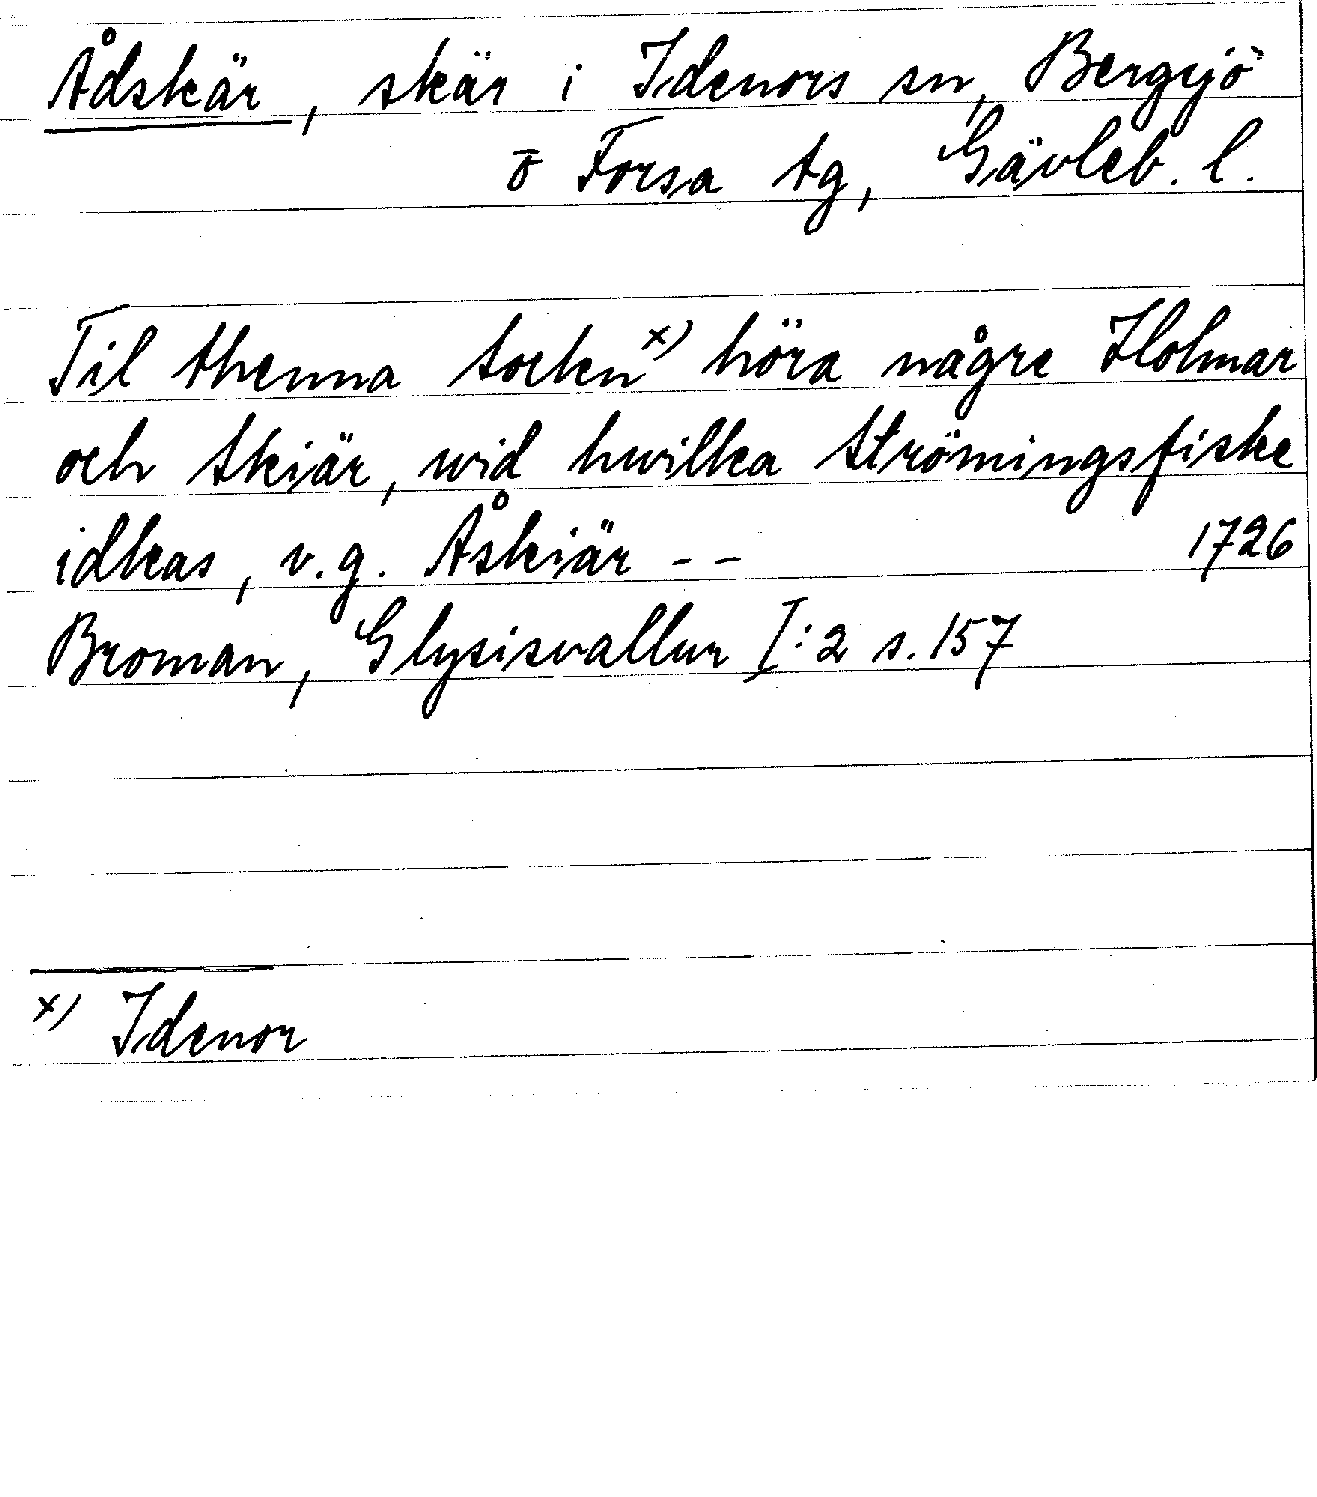 Ådskär, skär i Idenors sn, Bergsjö
o Forsa tg, Gävleb. l.
Til thenna socken x) höra någre Holmar
och Skiär, wid hwilka Strömingsfiske
idkas, v.g. Åskiär - - 1726
Broman, Glysisvallur I:2 s. 157
x) Idenor